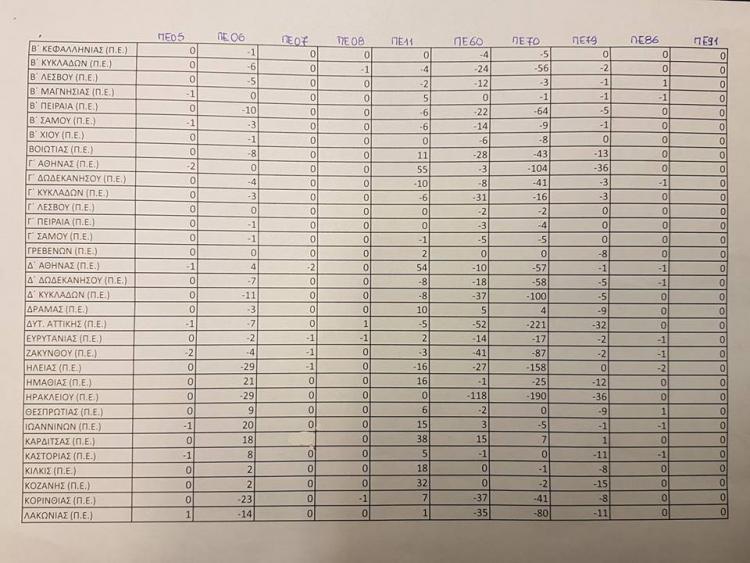 ΠΕ05 ΠΕ06 ΠΕ07 ΠΕ08 ΠΕ11 ΠΕ60 ΠΕ70 ΠΕ79 ΠΕ86 ΠΕ91
Β΄ ΚΕΦΑΛΛΗΝΙΑΣ (Π.Ε.) 0 -1 0 0 0 -4 -5 0 0 0
Β΄ ΚΥΚΛΑΔΩΝ (Π.Ε.) 0 -6 0 -1 -4 -24 -56 -2 0 0
Β΄ ΛΕΣΒΟΥ (Π.Ε.) 0 -5 0 0 -2 -12 -3 -1 1 0
Β΄ ΜΑΓΝΗΣΙΑΣ (Π.Ε.) -1 0 0 0 5 0 -1 -1 -1 0
Β΄ ΠΕΙΡΑΙΑ (Π.Ε.) 0 -10 0 0 -6 -22 -64 -5 0 0
Β΄ ΣΑΜΟΥ (Π.Ε.) -1 -3 0 0 -6 -14 -9 -1 0 0
Β΄ ΧΙΟΥ (Π.Ε.) 0 -1 0 0 0 -6 -8 0 0 0
ΒΟΙΩΤΙΑΣ (Π.Ε.) 0 -8 0 0 11 -28 -43 -13 0 0
Γ΄ ΑΘΗΝΑΣ (Π.Ε.) -2 0 0 0 55 -3 -104 -36 0 0
Γ΄ ΔΩΔΕΚΑΝΗΣΟΥ (Π.Ε.) 0 -4 0 0 -10 -8 -41 -3 -1 0
Γ΄ ΚΥΚΛΑΔΩΝ (Π.Ε.) 0 -3 0 0 -6 -31 -16 -3 0 0
Γ΄ ΛΕΣΒΟΥ (Π.Ε.) 0 0 0 0 0 -2 -2 0 0 0
Γ΄ ΠΕΙΡΑΙΑ (Π.Ε.) 0 -1 0 0 0 -3 -4 0 0 0
Γ΄ ΣΑΜΟΥ (Π.Ε.) 0 -1 0 0 -1 -5 -5 0 0 0
ΓΡΕΒΕΝΩΝ (Π.Ε.) 0 0 0 0 2 0 0 -8 0 0
Δ΄ ΑΘΗΝΑΣ (Π.Ε.) -1 4 -2 0 54 -10 -57 -1 -1 0
Δ΄ ΔΩΔΕΚΑΝΗΣΟΥ (Π.Ε.) 0 -7 0 0 -8 -18 -58 -5 -1 0
Δ΄ ΚΥΚΛΑΔΩΝ (Π.Ε.) 0 -11 0 0 -8 -37 -100 -5 0 0
ΔΡΑΜΑΣ (Π.Ε.) 0 -3 0 0 10 5 4 -9 0 0
ΔΥΤ. ΑΤΤΙΚΗΣ (Π.Ε.) -1 -7 0 1 -5 -52 -221 -32 0 0
ΕΥΡΥΤΑΝΙΑΣ (Π.Ε.) 0 -2 -1 -1 2 -14 -17 -2 -1 0
ΖΑΚΥΝΘΟΥ (Π.Ε.) -2 -4 -1 0 -3 -41 -87 -2 -1 0
ΗΛΕΙΑΣ (Π.Ε.) 0 -29 -1 0 -16 -27 -158 0 -2 0
ΗΜΑΘΙΑΣ (Π.Ε.) 0 21 0 0 16 -1 -25 -12 0 0
ΗΡΑΚΛΕΙΟΥ (Π.Ε.) 0 -29 0 0 0 -118 -190 -36 0 0
ΘΕΣΠΡΩΤΙΑΣ (Π.Ε.) 0 9 0 0 6 -2 0 -9 1 0
ΙΩΑΝΝΙΝΩΝ (Π.Ε.) -1 20 0 0 15 3 -5 -1 -1 0
ΚΑΡΔΙΤΣΑΣ (Π.Ε.) 0 18 0 0 38 15 7 1 0 0
ΚΑΣΤΟΡΙΑΣ (Π.Ε.) -1 8 0 0 5 -1 0 -11 -1 0
ΚΙΛΚΙΣ (Π.Ε.) 0 2 0 0 18 0 -1 -8 0 0
ΚΟΖΑΝΗΣ (Π.Ε.) 0 2 0 0 32 0 -2 -15 0 0
ΚΟΡΙΝΘΙΑΣ (Π.Ε.) 0 -23 0 -1 7 -37 -41 -8 0 0
ΛΑΚΩΝΙΑΣ (Π.Ε.) 1 -14 0 0 1 -35 -80 -11 0 0